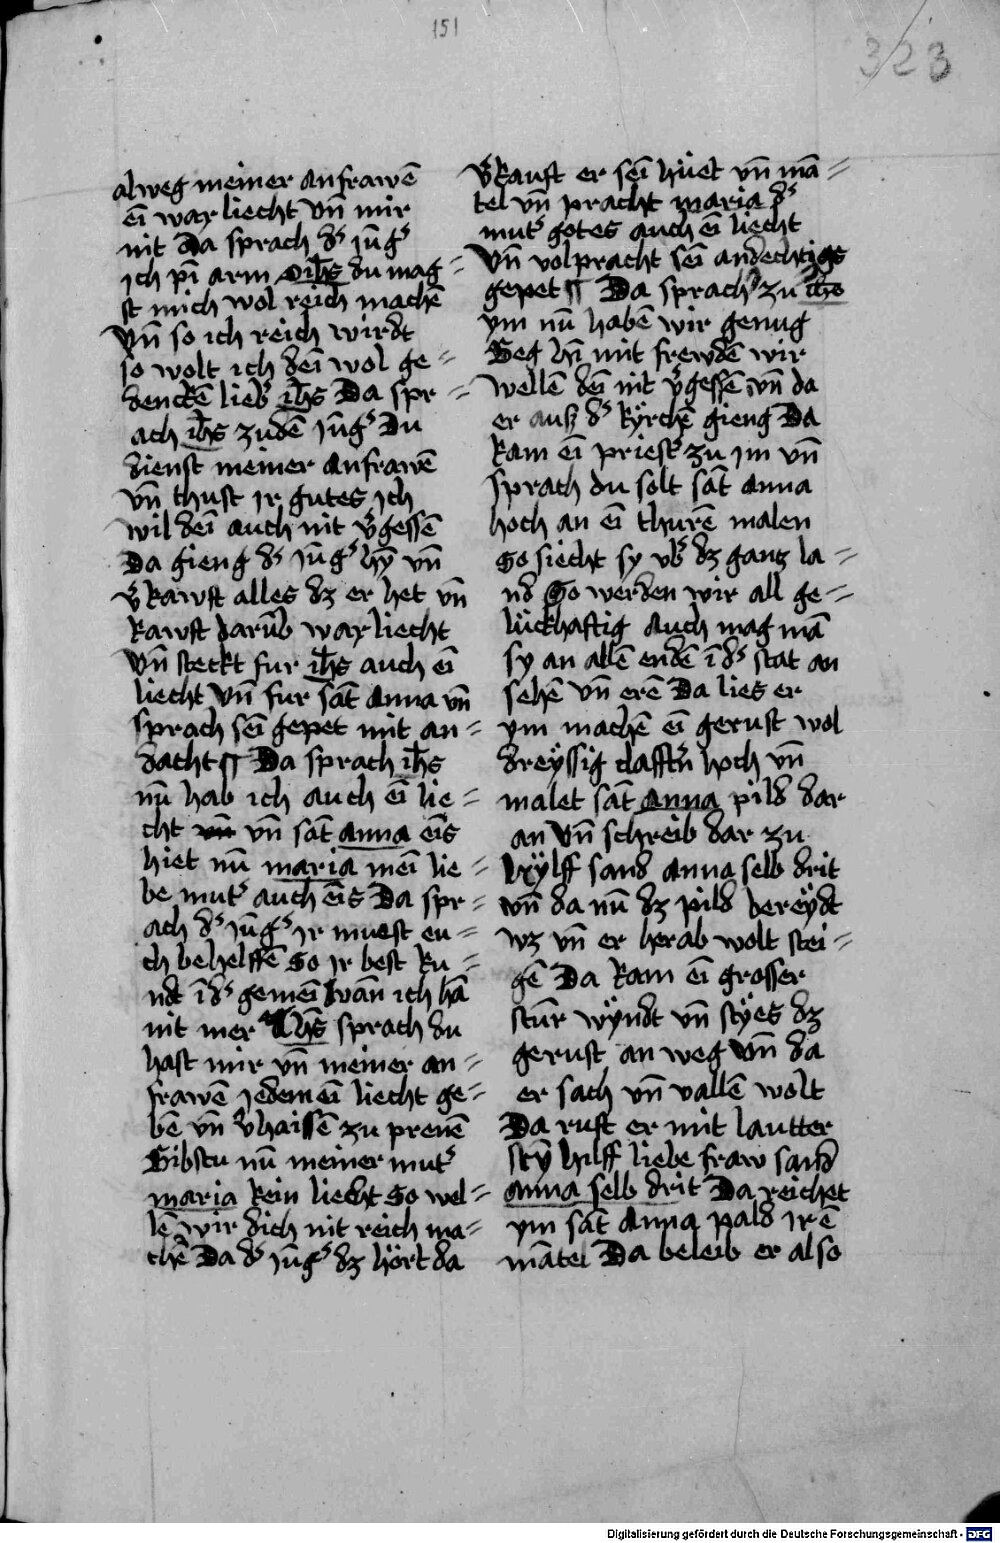 151
323
alweg meiner anfrawē
eī wax liecht vn̄ mir
nit da sprach dˢ jūgˢ
jch pī arm o ih̄s du mag=
st mich wol reich machē
vn̄ so ich reich wirdt
so wolt ich deī wol ge=
denckē liebˢ ih̄s Da spr=
ach ih̄s zudē jūgˢ Du
dienst meiner anfrawē
vn̄ thust jr gutes jch
wil deī auch nit vˢgessē
Da gieng dˢ jūgˢ hȳ vn̄
vˢkawft alles dz er het vn̄
kawft darūb wax liecht
vn̄ steckt fur ih̄s auch eī
liecht vn̄ fur sāt anna vn̄
sprach seī gepet mit an=
dacht ¶ Da sprach ih̄s
nū hab ich auch eī lie=
cht vn̄ vn̄ sāt anna eīs
hiet nū maria meī lie=
be mutˢ auch eīs Da spr=
ach dˢ jūgˢ jr muest eu=
ch behelffē So jr best ku=
ndt ī dˢ gemeī wān ich hā
nit mer Ih̄s sprach du
hast mir vn̄ meiner an=
frawē jedem eī liecht ge=
bē vn̄ vˢhaissē zu prenē
Gibstu nū meiner mutˢ
maria kein liecht So wel=
lē wir dich nit reich ma=
chē Da dˢ jūgˢ dz hört da
vˢkauft er seī hüet vn̄ mā=
tel vn̄ pracht maria dˢ
mutˢ gotes auch eī liecht
vn̄ volpracht sei andechtigs
gepet ¶ Da sprach ih̄s zu
ym nū habē wir genug
Geg hī mit frewdē wir
wellē deī nit vˢgessē vn̄ da
er auß dˢ kÿrchē gieng Da
kam eī priestˢ zu jm vn̄
sprach du solt sāt anna
hoch an eī thurē malen
So siecht sy vbˢ dz gantz la=
nd So werden wir all ge=
lückhaftig auch mag mā
sy an allē endē ī dˢ stat an
sehē vn̄ erē Da lies er
ym machē eī gerust wol
dreÿssig clafftˢn hoch vn̄
malet sāt anna pild dar
an vn̄ schreib dar zu
hÿlff sand anna selb drit
vn̄ da nū dz pild bereÿdt
wz vn̄ er herab wolt stei=
gē Da kam eī grosser
stūr wÿndt vn̄ styes dz
gerust an weg vn̄ da
er sach vn̄ vallē wolt
Da ruft er mit lautter
stȳ hilff liebe fraw sand
anna selb drit Da reichet
ym sāt anna pald jrē
mātel Da beleib er also
Digitalisierung gefördert durch die Deutsche Forschungsgemeinschaft - DFG